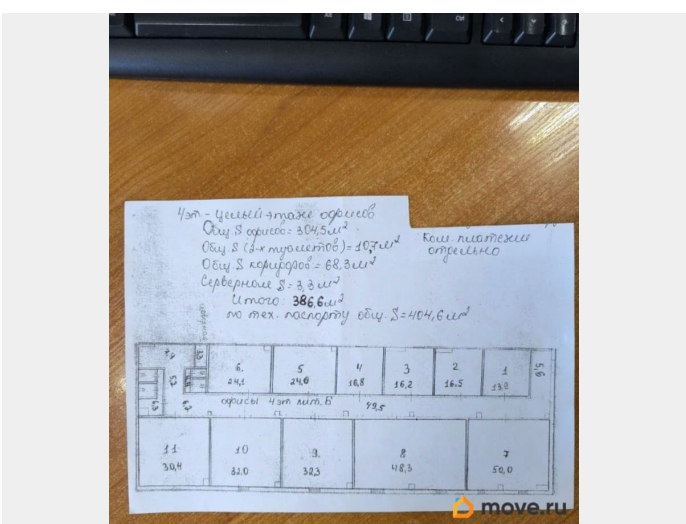 4 эт. - целый этаж офисов
Общ. S офисов = 304,5 м²
Общ. S (2-х туалетов) = 10,7 м²
Общ. S коридоров = 68,3 м²
Серверной S = 3,3 м²
Итого: 386,6 м²
по тех. паспорту общ. S = 404,6 м²
Ком. платежи
отдельно
6.
24,1
5
24,0
4
16,8
3
16,2
2
16.5
1
5,6
офисы 4 эт лит. В
49,5
11
30,4
10
32.0
9.
32,3
8
48,3
7
50,0
move.ru